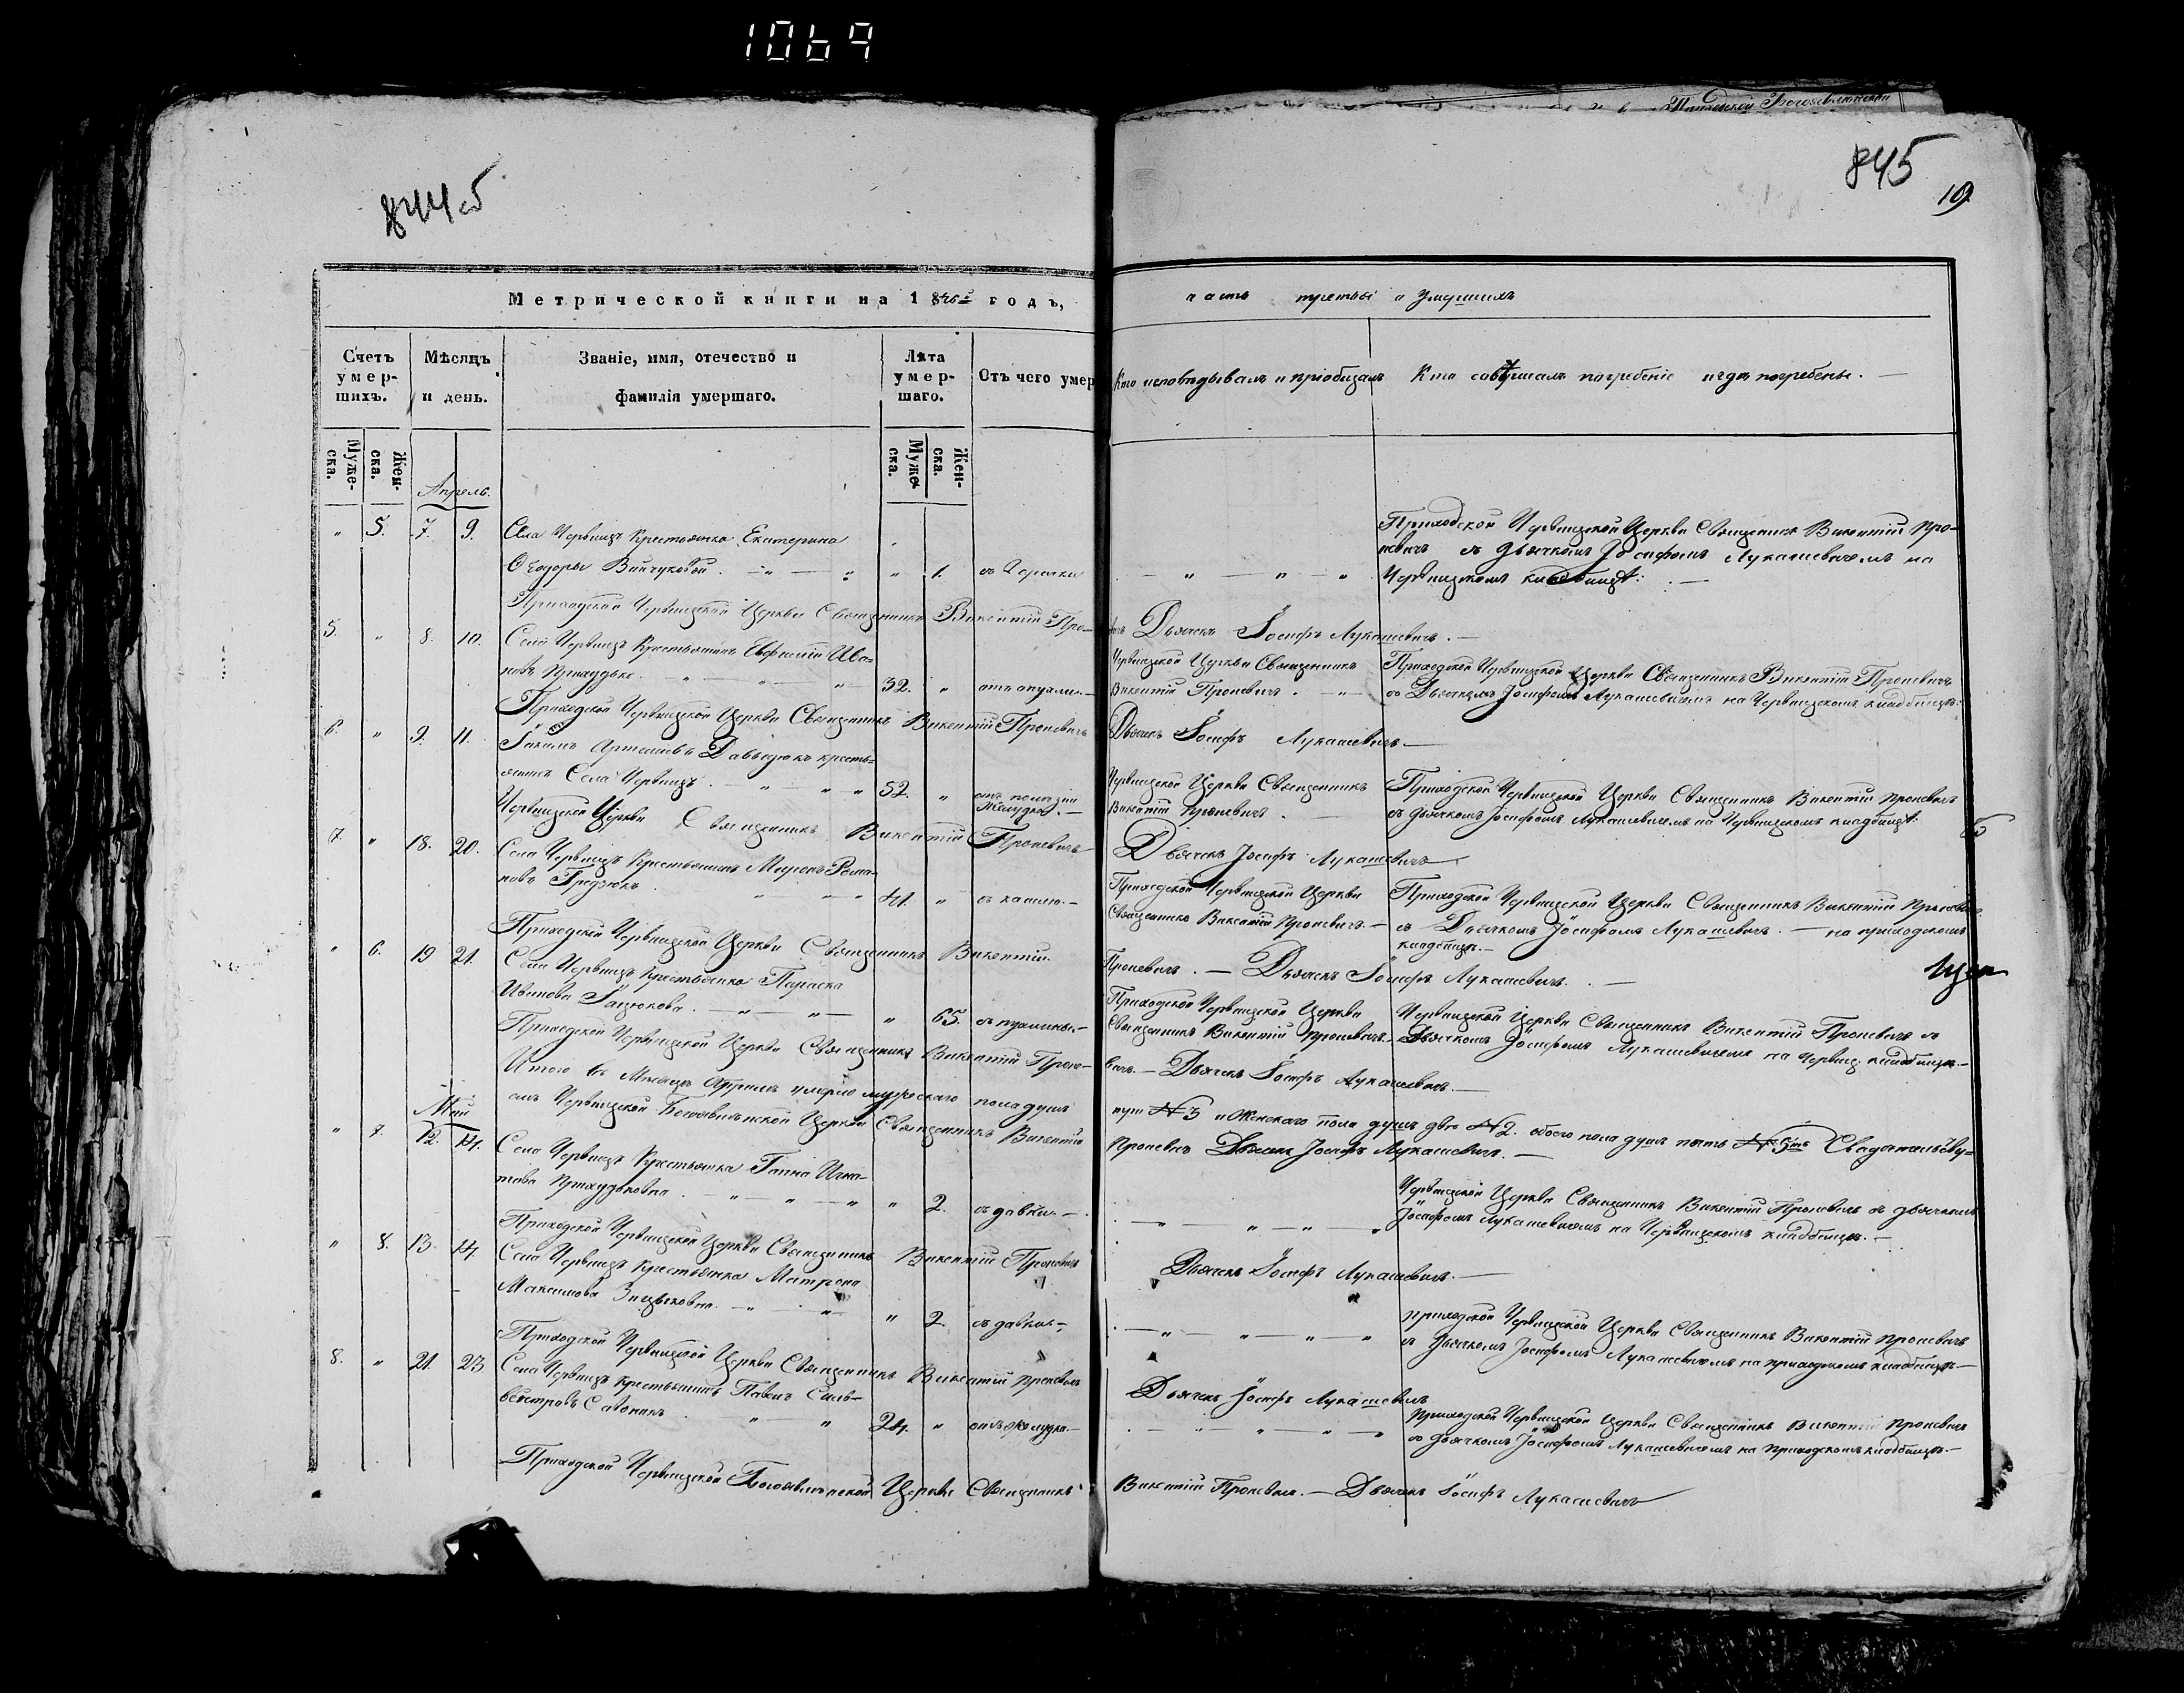 1069
Богоявленской
844 об
845
19
Метрической книги на 1845й годъ,
часть третья о умершихъ
Счетъ умер-шихъ.
Мѣсяцъ и день.
Званіе, имя, отечество и фамилія умершаго.
Лѣта умер-шаго.
Отъ чего умер
Кто исповѣдывалъ и пріобщалъ
Кто совершалъ погребеніе и гдѣ погребены. —
Муже-ска.
Жен-ска.
Муже-ска.
Жен-ска.
Апрель.
" 5. 7. 9. Села Червищъ Крестьянка Екатерина
Ѳеодоры Вайчуковой " 1.
Приходской Червищской Церкви Священникъ Викентій Про-
невичъ съ Дьячкомъ Іосифомъ Лукашевичемъ на
Червищскомъ кладбищѣ. —
Приходской Червищской Церкви Священникъ Викентій Про-
Дьячекъ Іосифъ Лукашевичъ. —
5. " 8. 10. Села Червищъ Крестьянинъ Евфимій Ива-
новъ 32. "
Червищской Церкви Священникъ
Викентій Проневичъ.
Приходской Червищской Церкви Священникъ Викентій Проневичъ
съ Дьячкомъ Іосифомъ Лукашевичемъ на Червищскомъ кладбищѣ.
Приходской Червищской Церкви Священникъ Викентій Проневичъ
Дьячекъ Іосифъ Лукашевичъ. —
6. " 9. 11. Іакимъ Артемievъ Давыдюкъ кресть-
янинъ Села Червищъ. 52. "
Желудка. —
Червищской Церкви Священникъ
Викентій Проневичъ.
Приходской Червищской Церкви Священникъ Викентій Проневичъ
съ Дьячкомъ Іосифомъ Лукашевичемъ на Червищскомъ кладбищѣ.
Червищской Церкви Священникъ Викентій Проневичъ
Дьячекъ Іосифъ Лукашевичъ
7. " 18. 20. Села Червищъ Крестьянинъ Миронъ Рома-
новъ 41. "
Приходской Червищской Церкви
Священникъ Викентій Проневичъ. —
Приходской Червищской Церкви Священникъ Викентій Проневичъ
съ Дьячкомъ Іосифомъ Лукашевичъ. — на приходскомъ
кладбищѣ. —
Приходской Червищской Церкви Священникъ Викентій
Проневичъ. — Дьячекъ Іосифъ Лукашевичъ. —
" 6. 19 21. Села Червищъ Крестьянка Параска
Иванова " 65.
Приходской Червищской Церкви
Священникъ Викентій Проневичъ. —
Червищской Церкви Священникъ Викентій Проневичъ съ
Дьячкомъ Іосифомъ Лукашевичемъ на Червищ. кладбищѣ. —
Приходской Червищской Церкви Священникъ Викентій Проне-
вичъ. — Дьячекъ Іосифъ Лукашевичъ. —
Итого въ Мѣсяцѣ Апрелѣ умерло мужескаго пола душъ
три №3 и Женскаго пола душъ двѣ №2. обоего пола душъ пять №5ть Свидѣтельству-
емъ Червищской Богоявленской Церкви Священникъ Викентій
Проневичъ Дьячекъ Іосифъ Лукашевичъ. —
Май
" 7. 12. 14. Села Червищъ Крестьянка Ганна Игна-
това " 2.
Червищской Церкви Священникъ Викентій Проневичъ съ дьячкомъ
Іосифомъ Лукашевичемъ на Червищскомъ кладбищѣ. —
Приходской Червищской Церкви Священникъ Викентій Проневичъ
Дьячекъ Іосифъ Лукашевичъ. —
" 8. 13. 14. Села Червищъ Крестьянка Матрона
Максимова " 2.
приходской Червищской Церкви Священникъ Викентій Проневичъ
съ Дьячкомъ Іосифомъ Лукашевичемъ на приходскомъ кладбищѣ —
Приходской Червищской Церкви Священникъ Викентій Проневичъ
Дьячекъ Іосифъ Лукашевичъ
8. " 21. 23 Села Червищъ Крестьянинъ Павелъ Силь-
вестровъ 24. "
Приходской Червищской Церкви Священникъ Викентій Проневичъ
съ Дьячкомъ Іосифомъ Лукашевичемъ на Приходскомъ кладбищѣ —
Приходской Червищской Богоявленской Церкви Священникъ
Викентій Проневичъ. — Дьячекъ Іосифъ Лукашевичъ